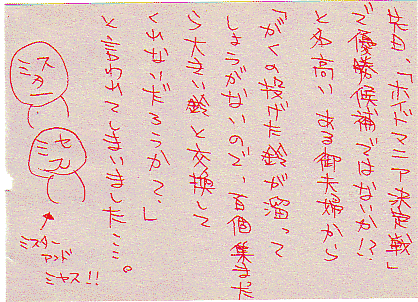 先日、「ホイドマニア決定戦」
で優勝候補ではないか!?
と名高いある御夫婦から
「がくの投げた鈴が溜って
しょうがないので、百個集まった
ら大きい鈴と交換して
くれないだろうかて、」
と言われてしまいました…。
ミスター
ミヤス
ミスター
アンド
ミヤス!!